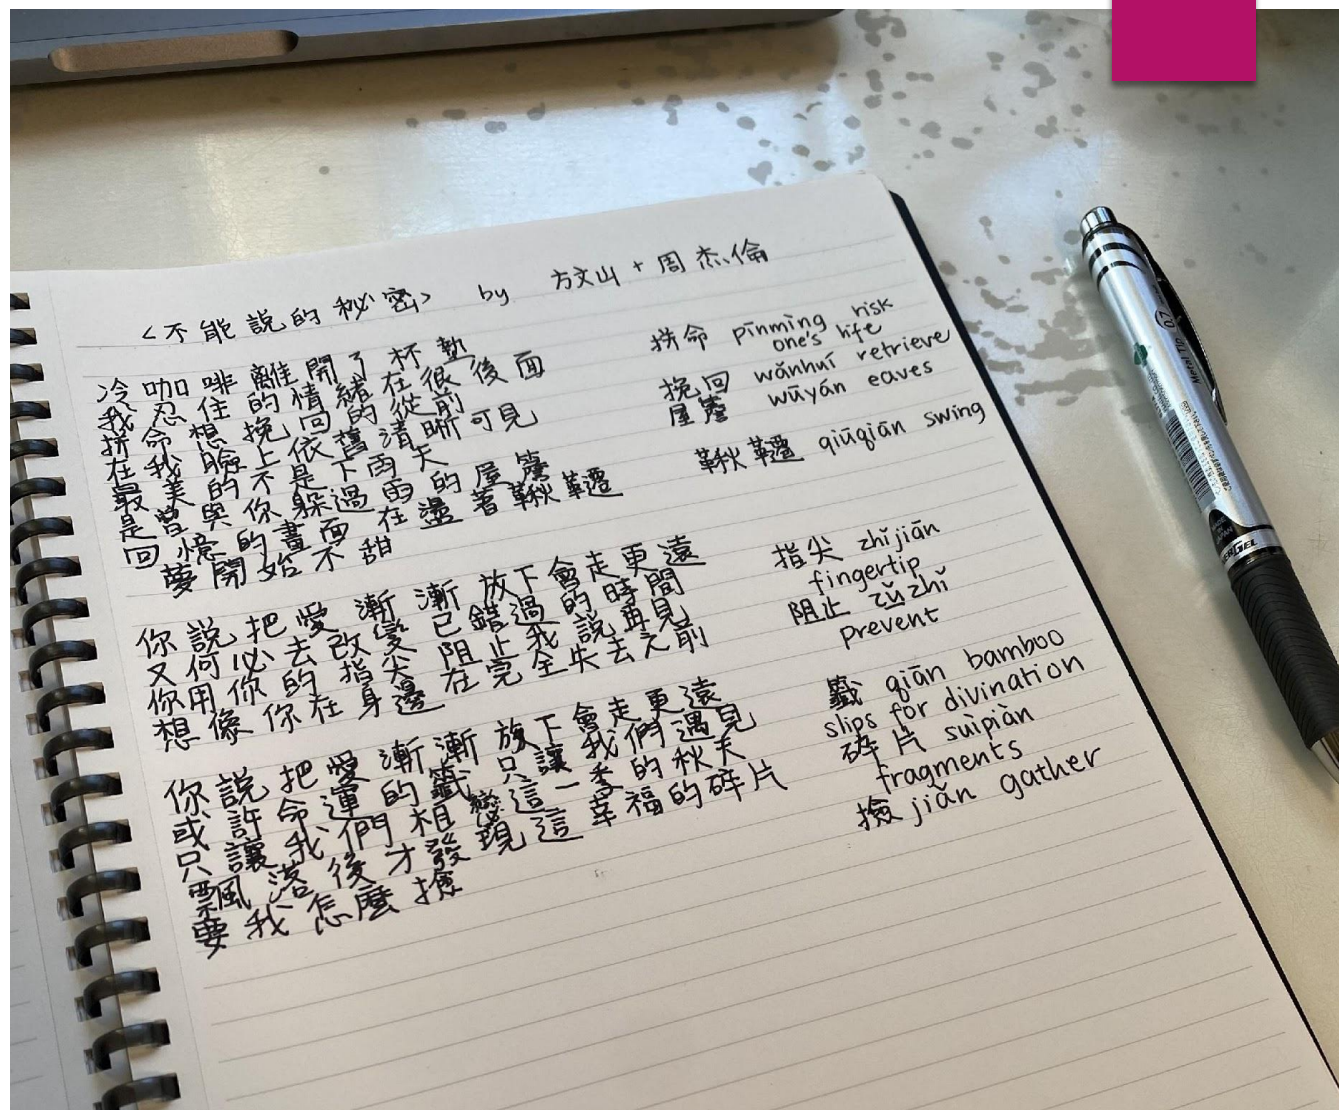 <不能說的秘密> by 方文山 + 周杰倫
冷咖啡離開了杯墊
我忍住的情緒在很後面
拼命想挽回的從前
在我臉上依舊清晰可見
最美的不是下雨天
是曾與你躲過雨的屋簷
回憶的畫面在盪著鞦韆
夢開始不甜
你說把愛漸漸放下會走更遠
又何必去改變已錯過的時間
你用你的指尖阻止我說再見
想像你在身邊在完全失去之前
你說把愛漸漸放下會走更遠
或許命運的籤只讓我們遇見
只讓我們相戀這一季的秋天
飄落後才發現這幸福的碎片
要我怎麼撿
拼命 pīnmìng risk
one's life
挽回 wǎnhuí retrieve
屋簷 wūyán eaves
鞦韆 qiūqiān swing
指尖 zhǐjiān
fingertip
阻止 zǔzhǐ
prevent
籤 qiān bamboo
slips for divination
碎片 suìpiàn
fragments
撿 jiǎn gather
Metal Tip
0.7